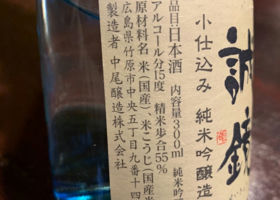 誠鏡
小仕込み 純米吟醸造
品目 日本酒 内容量300ml 純米吟
アルコール分15度 精米歩合55%
原材料名 米(国産)、米こうじ(国産米
広島県竹原市中央五丁目九番十四
製造者 中尾醸造株式会社